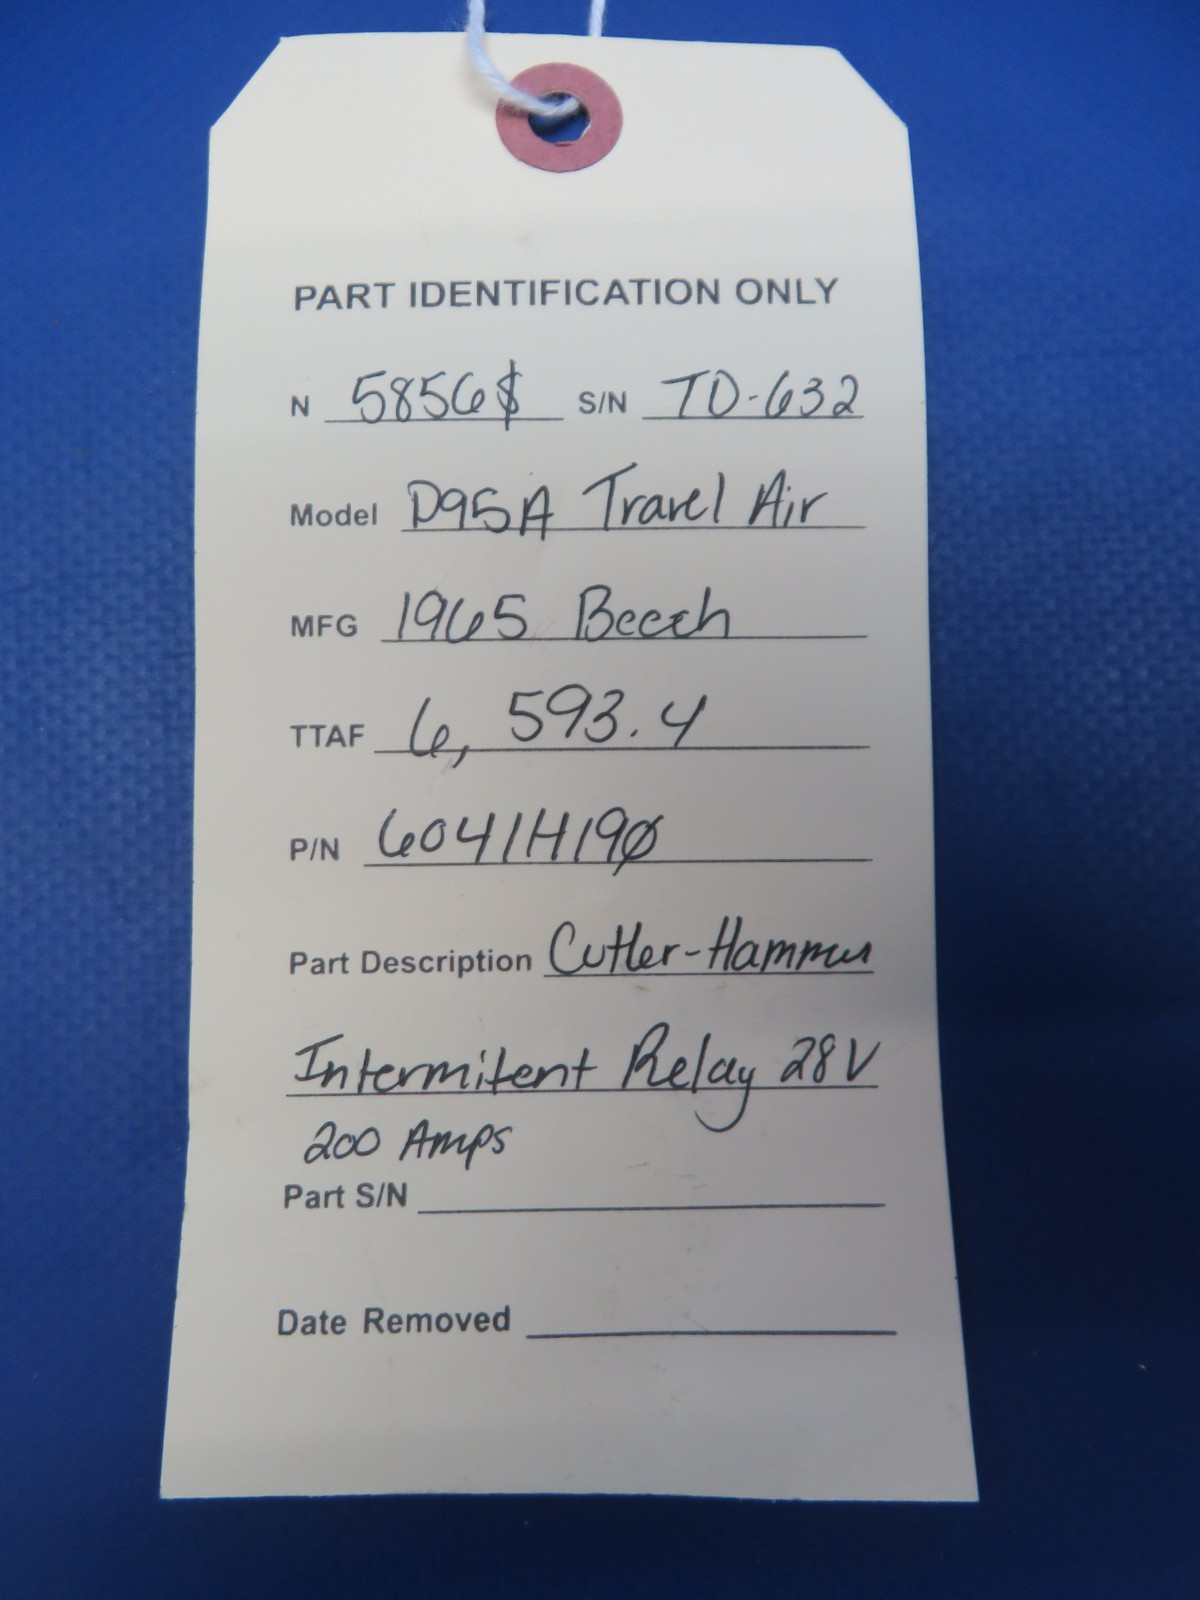 PART IDENTIFICATION ONLY
N 5856$ S/N TD-632
Model D95A Travel Air
MFG 1965 Beech
TTAF 6,593.4
P/N 6041H19Ø
Part Description Cutler-Hammer
Intermitent Relay 28V
200 Amps
Part S/N
Date Removed